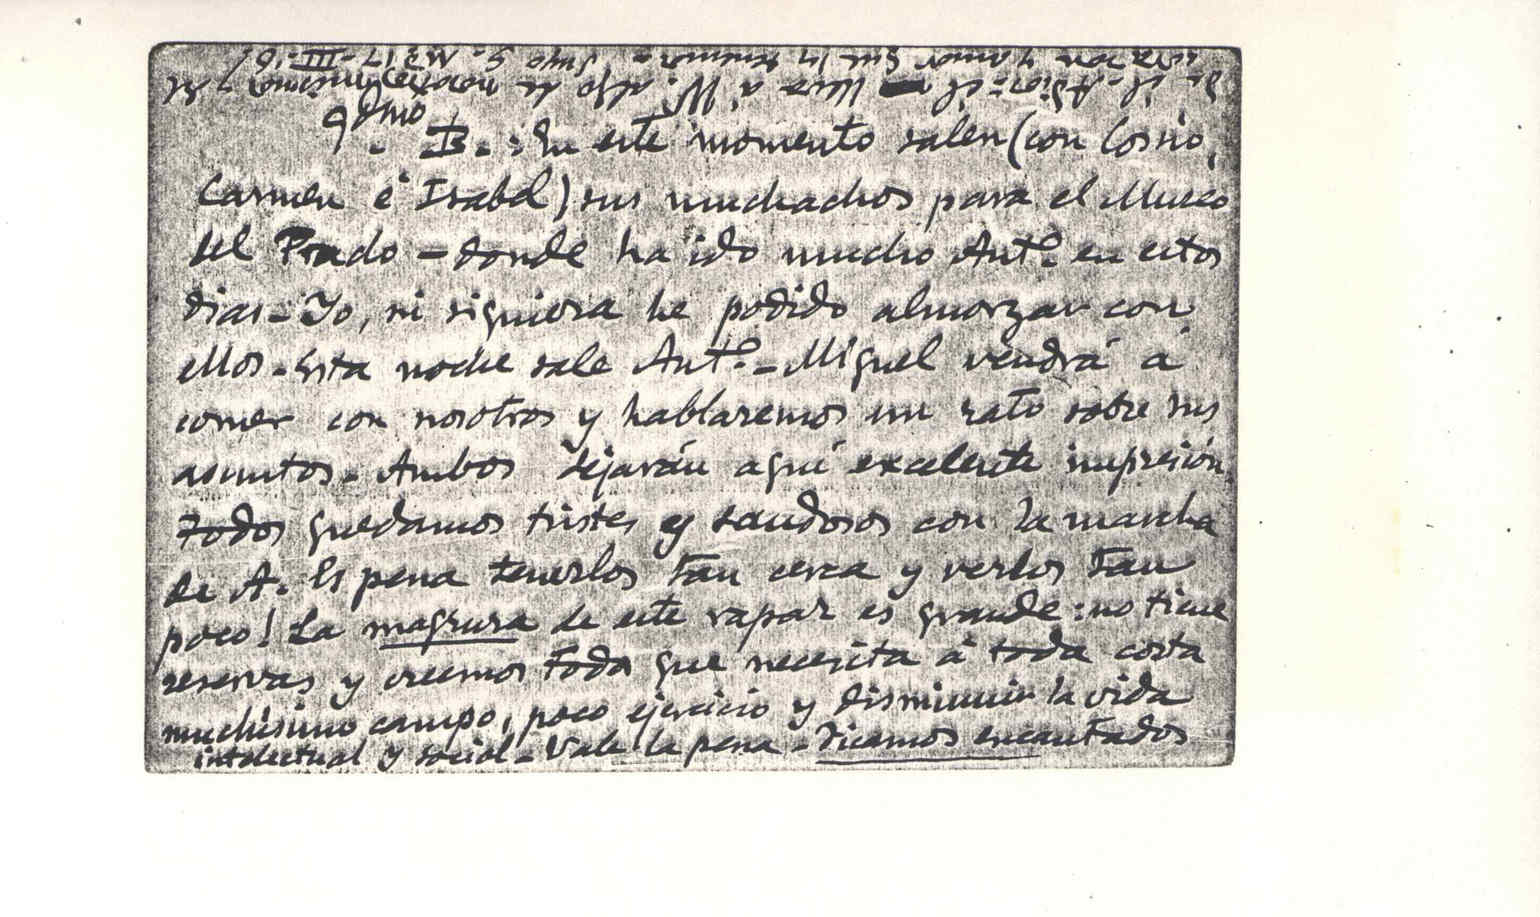 Qdmo
- B - : En este momento salen (con Cosío,
Carmen é Isabel) sus muchachos para el Museo
del Prado - donde ha ido mucho Antº. en estos
dias - Yo, ni siquiera he podido almorzar con
ellos - Esta noche sale Antº. - Miguel vendrá á
comer con nosotros y hablaremos un rato sobre sus
asuntos - Ambos dejarán aquí excelente impresión.
Todos quedamos tristes y saudosos con la marcha
de A. Es pena tenerlos tan cerca y verlos tan
poco! La magrura de este rapaz es grande: no tiene
reservas y creemos todos que necesita á toda costa
muchísimo campo, poco ejercicio y disminuir la vida
intelectual y social - Vale la pena - Ficamos encantados
de él - Adios - él lleva á M. algo de
y amor Suyo G - M. 17-III-